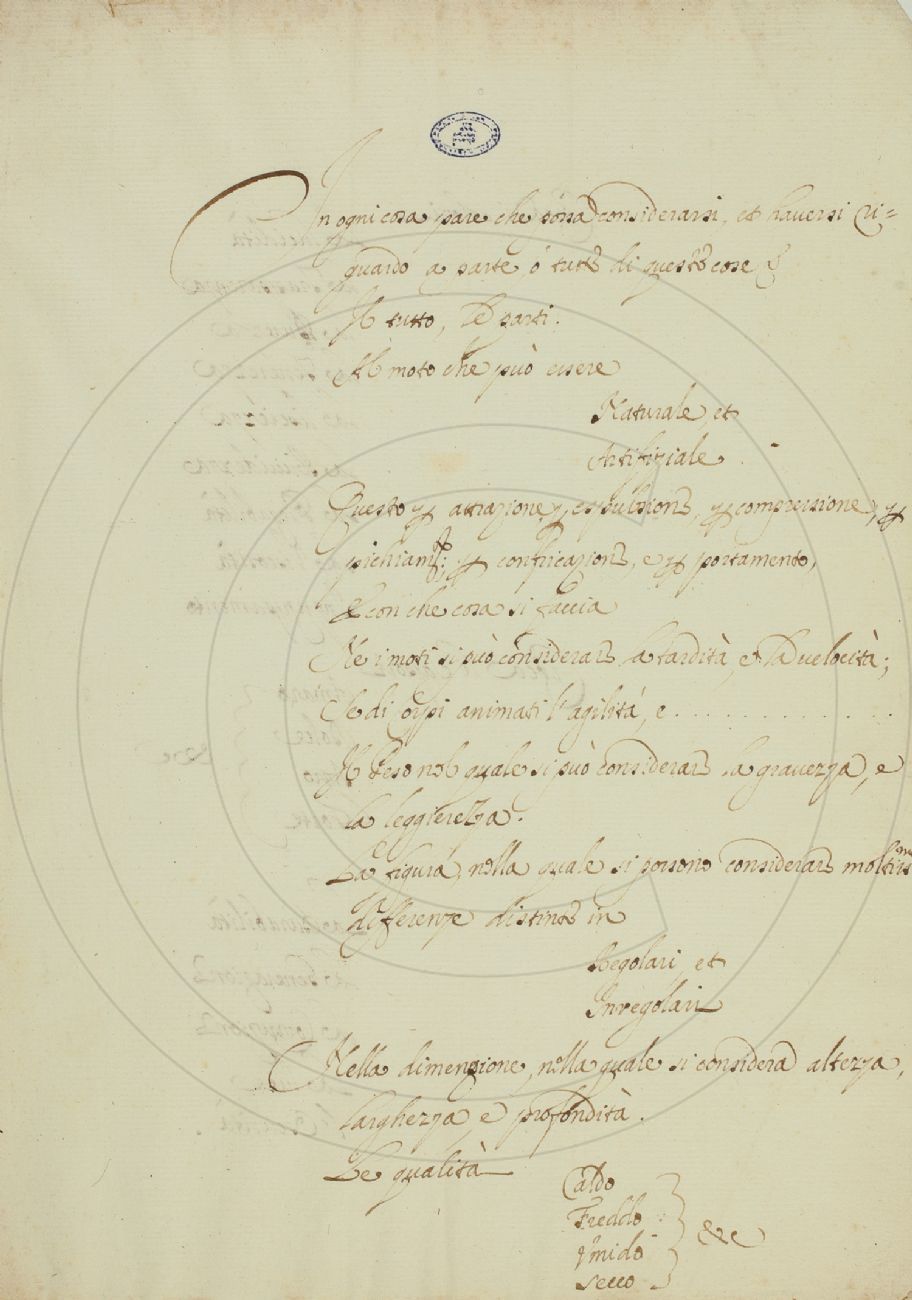 In ogni cosa pare che possa considerarsi, et haversi ri=
guardo a parte ò tutte di queste cose
Il tutto, Le parti.
Al moto che può essere
Naturale, et
Artifiziale.
Questo ꝑ attrazione, ꝑ espulsione, ꝑ compressione, ꝑ
pichiam.to; ꝑ confricazione, e ꝑ portamento,
& con che cosa si faccia
Ne i moti si può considerare la tardità, e La velocità;
Se di corpi animati l'agilità, e . . . . . . . . . . . . .
Il Peso nel quale si può considerare la gravezza, e
la leggierezza.
La figura, nella quale si possono considerare moltiss.me
differenze distinte in
Regolari, et
Inregolari
Nella dimenzione, nella quale si considera altezza,
larghezza, e profondità.
Le qualità
Caldo
Freddo
Vmido
Secco
&c